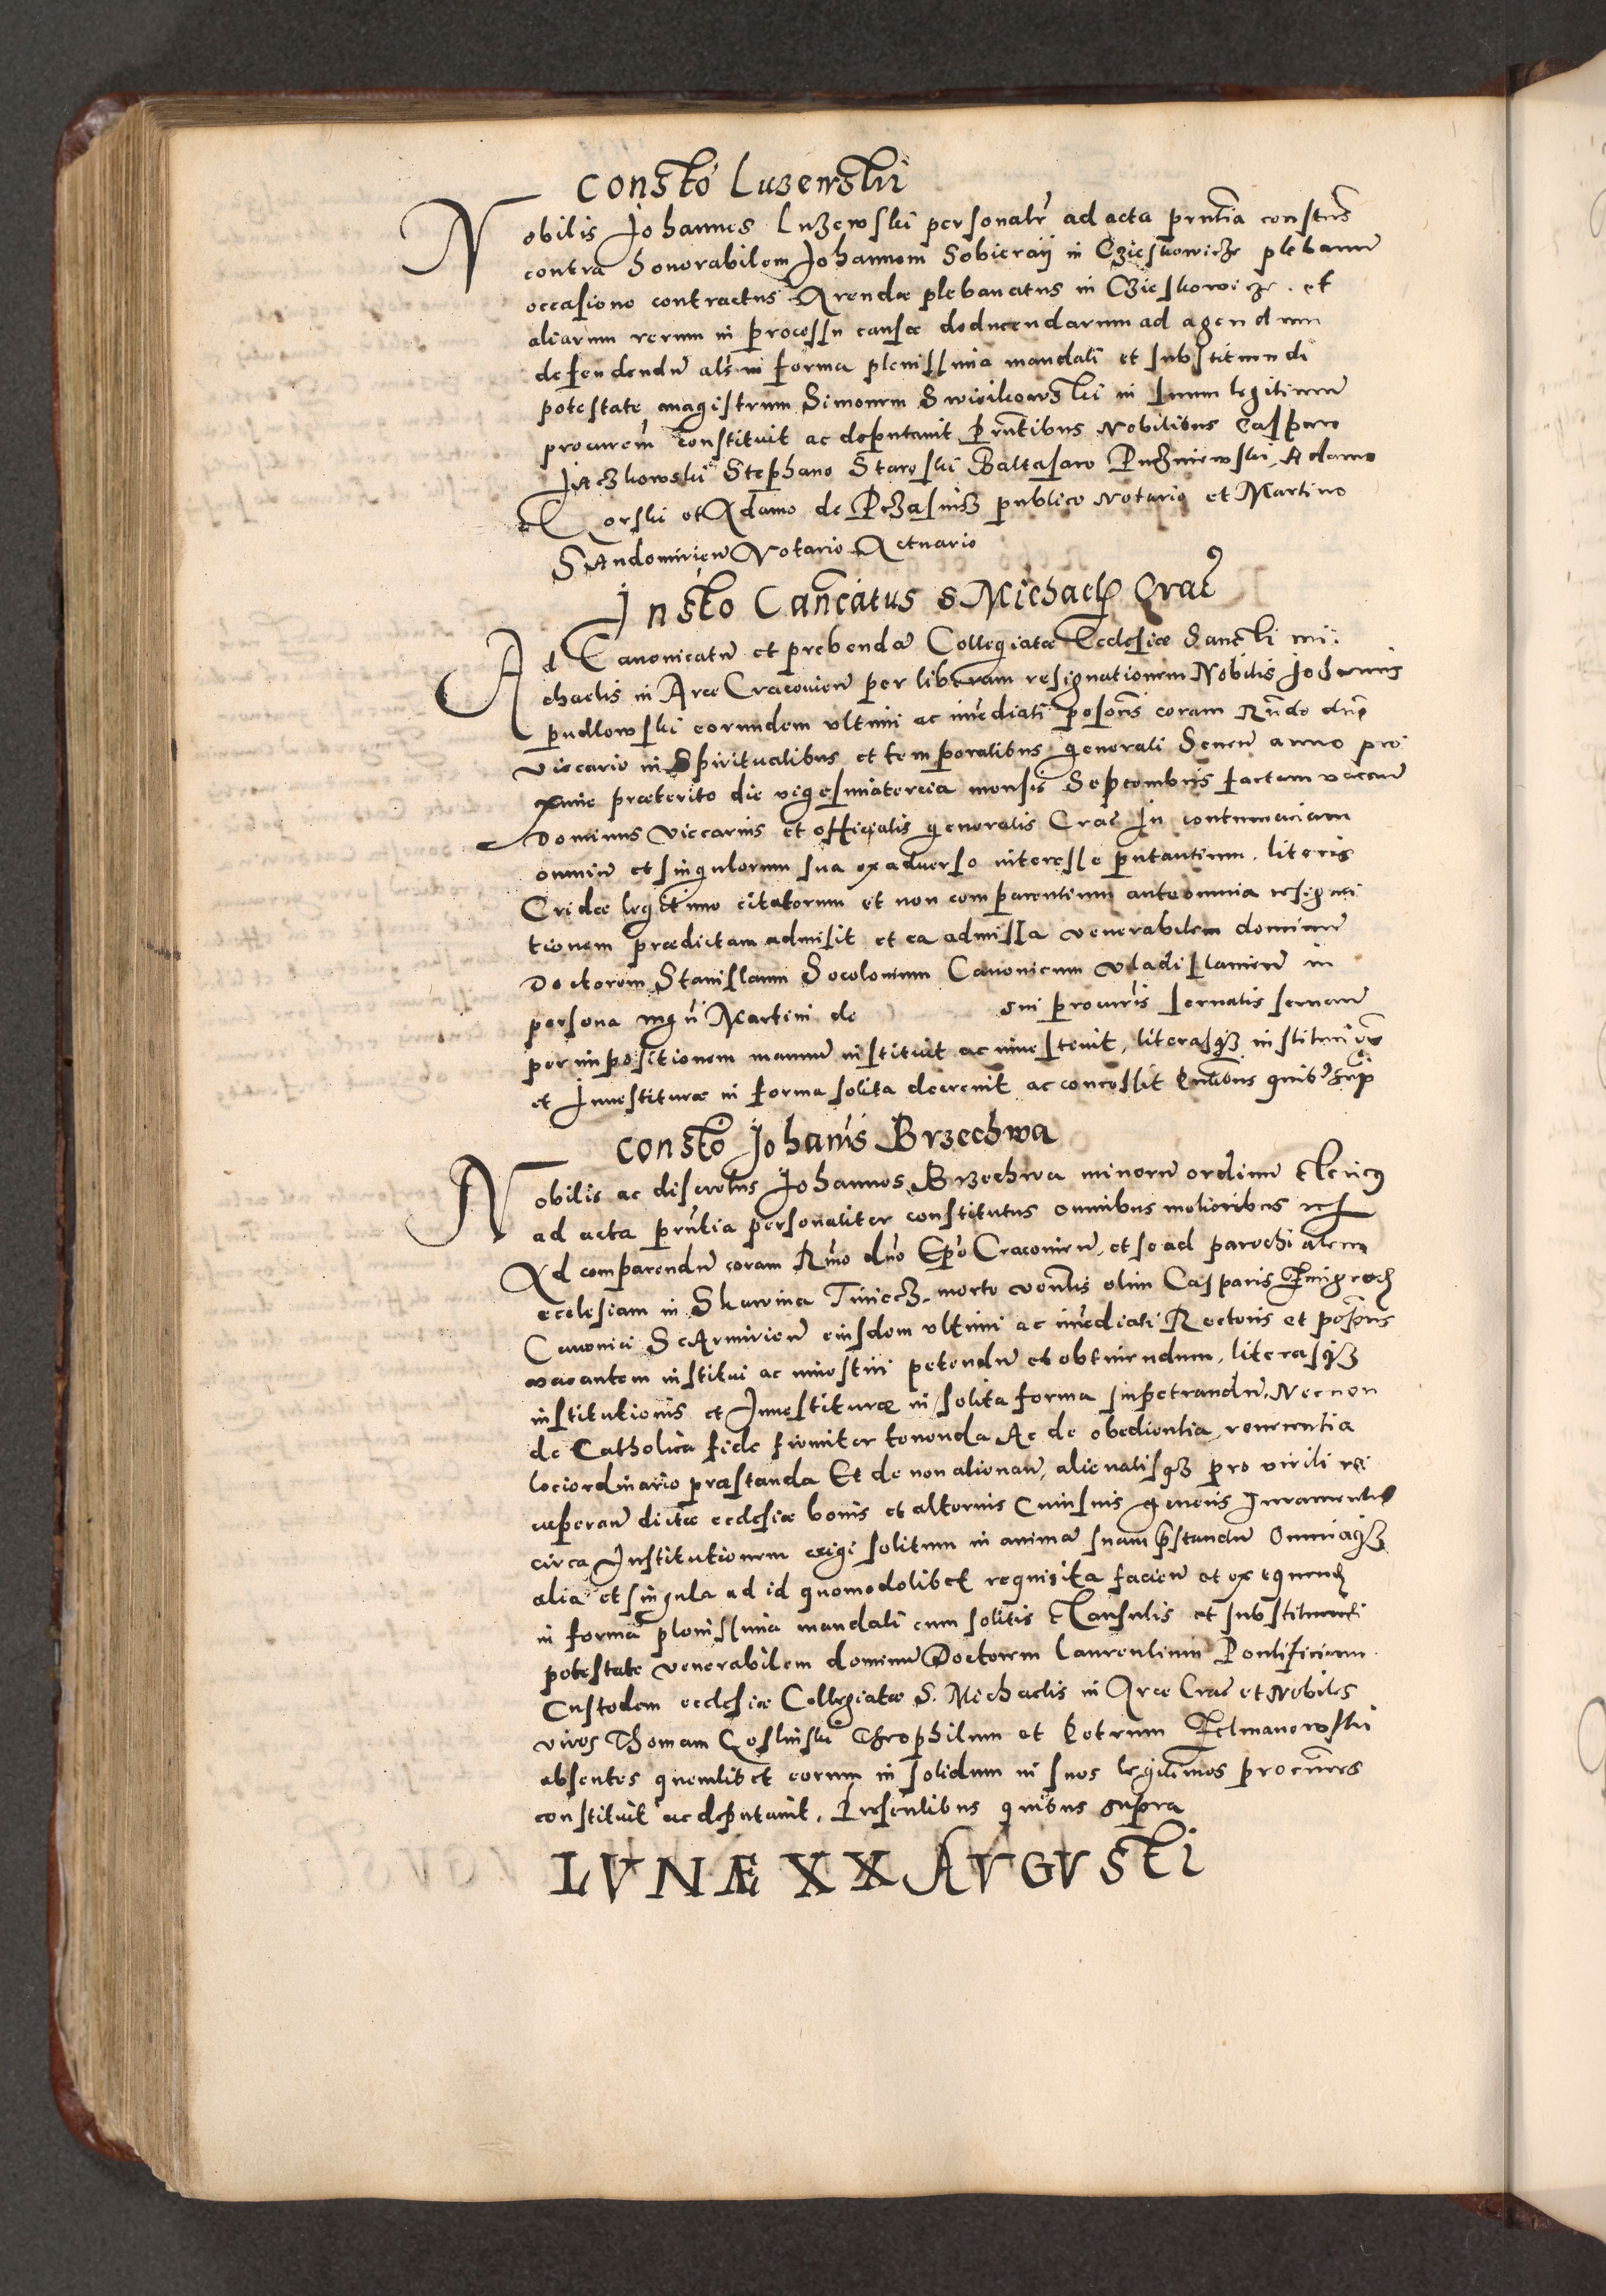 Constō Luzewskii
Nobilis Johannes Luzewski personalr̄ ad acta prn̄tia constus
contra honorabilem Johannem Sobieraij in Czieskowicze plebanū
occasione contractus Arendæ plebanatus in Czieskowicze. et
aliarum rerum in processu causæ deducendarum ad agendum
defendendū als in forma plenissima mandati et substituendi
potestate magistrum Simonem Swieikowski in suum legitimū
procurem̄ constituit ac deputauit Prn̄tibus Nobilibus Casparo
Jaczkowski Stephano Staroski Baltasaro Puczniewski, Adamo
Gorski et Adamo de publico Notario et Martino
Sandomirien̄ Notario Actuario
Instō Can̄catus S Michaelis Crac̄
Ad Canonicatū et prebendā Collegiatæ Ecclesiæ Sancti Mi:
chaelis in Arce Cracouien̄ per liberam resignationem Nobilis Johannis
Pudlowski eorundem vltimi ac im̄ediati poss̄oris coram Rn̄do dn̄o
viccario in Spiritualibus et temporalibus generali anno pro
xime præterito die vigesimatercia mensis Septembris factam vacan̄
Dominus viccarius et officialis generalis Crac̄ In contumaciam
omniū et singulorum sua exaduerso interesse putantium. literis
Cridæ legitime citatorum et non comparentium anteomnia resigna
tionem prædictam admisit et ea admissa venerabilem dominū
Doctorem Stanislaum Socolouium Canonicum Vladislauien̄ in
persona mgri Martini de sui procuris seruatis seruan̄
per impositionem manuū instituit ac inuestiuit, literasq₃ institutio͞is
et Inuestituræ in forma solita decreuit ac concessit quib₉ sup̄
Constō Johanis Brzechwa
Nobilis ac discretus Johannes Brzechwa minorū ordinū Clericus
ad acta prn̄tia personaliter constitutus omnibus melioribus
Ad comparendū coram Rmo dn̄o Epō Cracouien̄, et se ad parochialem
ecclesiam in Skawina Tiniecz, morte olim Casparis
Canonici Scarmirien̄ eiusdem vltimi ac im̄ediati Rectoris et poss̄oris
vacantem institui ac inuestiri petendū et obtinendum, literasq₃
institutionis et Inuestituræ in solita forma impetrandū. Necnon
de Catholica fide firmiter tenenda Ac de obedientia, reuerentia
lociordinario præstanda Et de non alienan̄, alienatisq₃ pro virili re
cuperan̄ dictæ ecclesiæ bonis et alterius cuiusuis generis Iuramentū
circa Institutionem exigi solitum in animā suam præstandū Omniaq₃
alia et singula ad id quomodolibet requisita facien̄ et exequend
in forma plenissima mandati cum solitis Clausulis et substituendi
potestate venerabilem dominū Doctorem Laurentium Pontificium
Custodem ecclesiæ Collegiatæ S. Michaelis in Arce Crac̄ et Nobiles
viros Thomam Goslinski Theophilum et Petrum
absentes quemlibet eorum in solidum in suos legitimos procures
constituit ac deputauit. Presentibus quibus supra
LVNÆ XX AVGVSTI